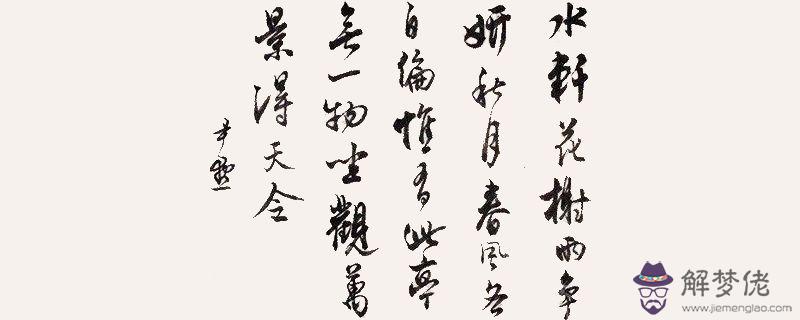 水軒花榭兩爭
妍秋月春風各
自偏惟有此亭
無一物坐觀萬
景得天全
尹默
解梦佬
www.jiemenglao.com